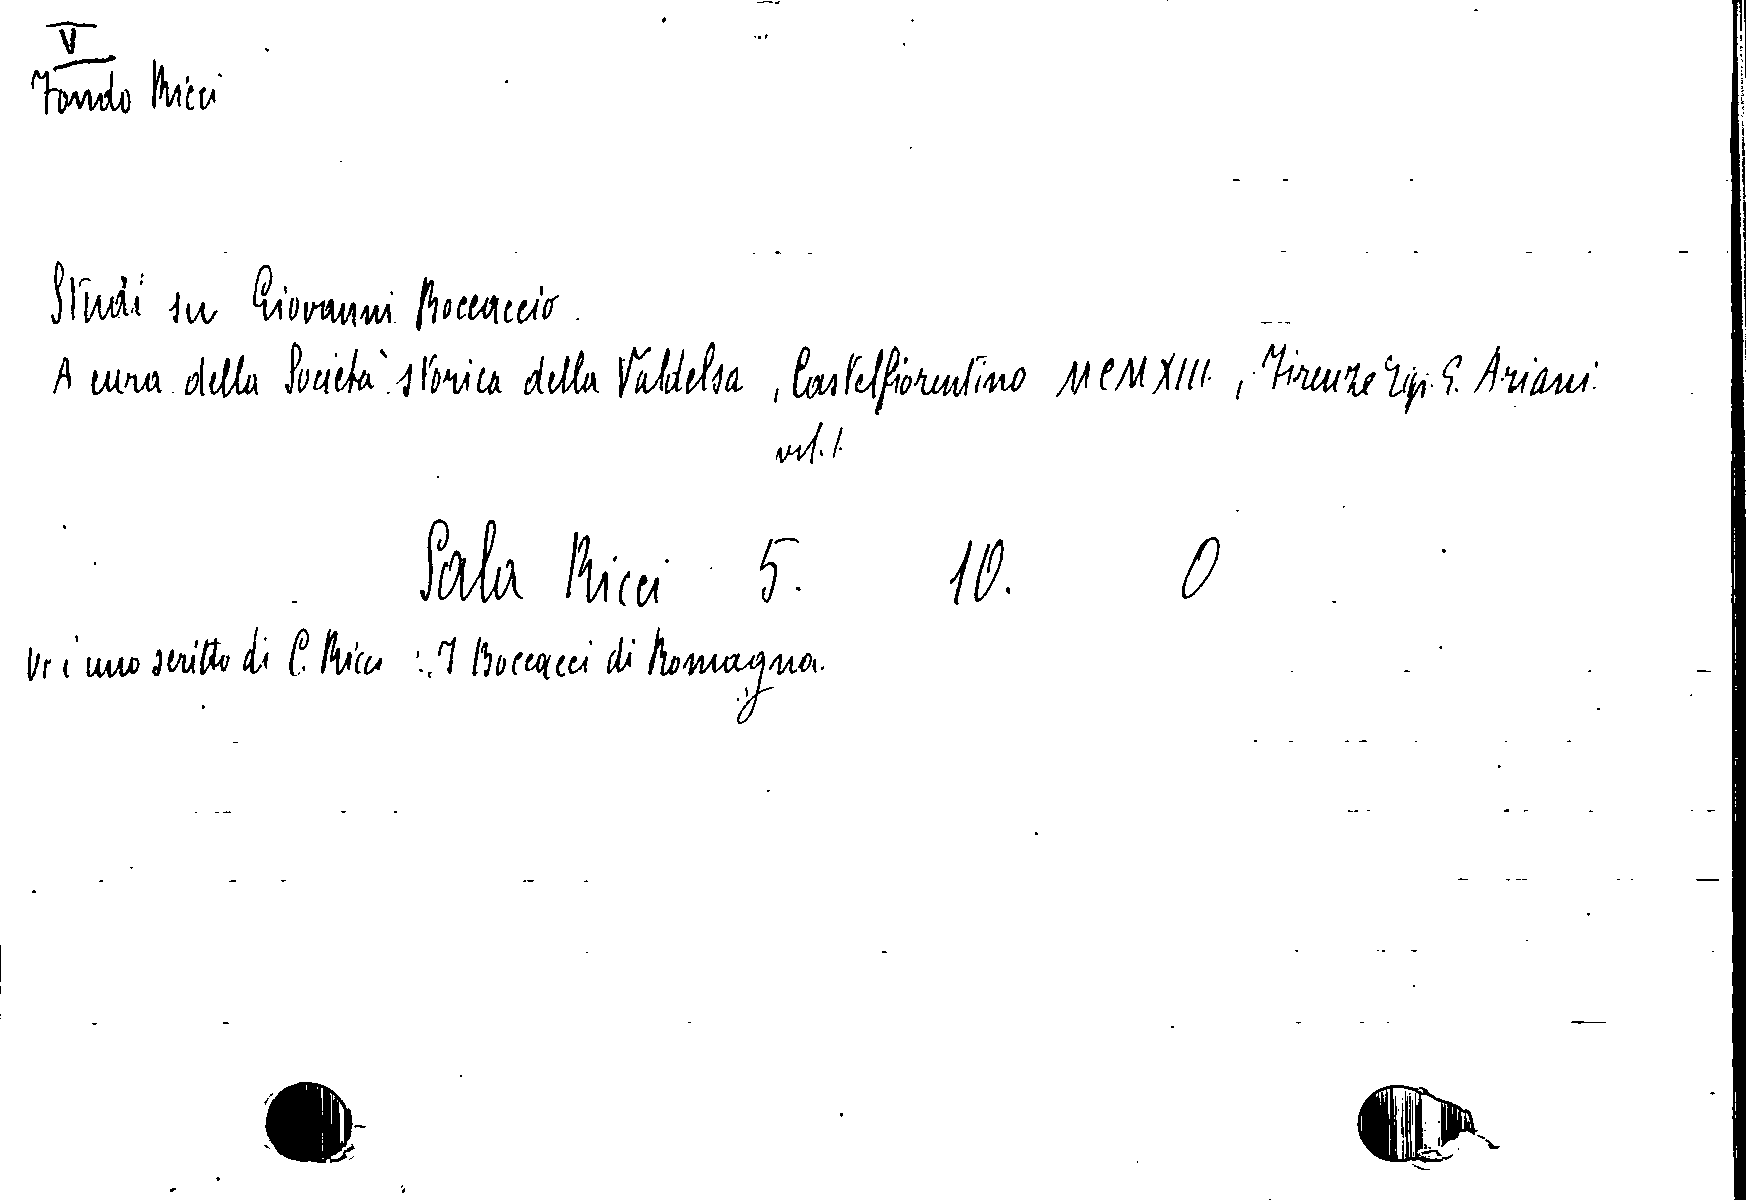 V
Fondo Ricci
Studi su Giovanni Boccaccio.
A cura della Società storica della Valdelsa, Castelfiorentino MCMXIII, Firenze Tip. G. Ariani.
vol. 1.
Sala Ricci 5. 10. 0
Vi è uno scritto di C. Ricci: I Boccacci di Romagna.